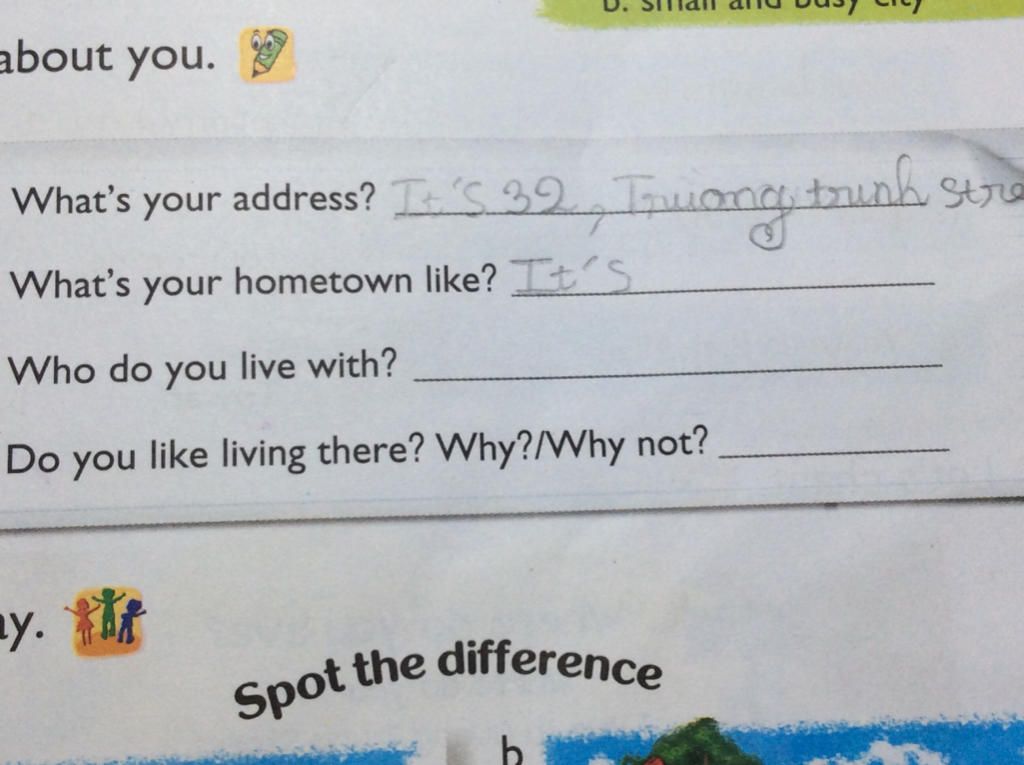 b. small and busy city
about you.
What's your address? It's 32, Truong trinh Stre
What's your hometown like? It's
Who do you live with?
Do you like living there? Why?/Why not?
ay.
Spot the difference
b